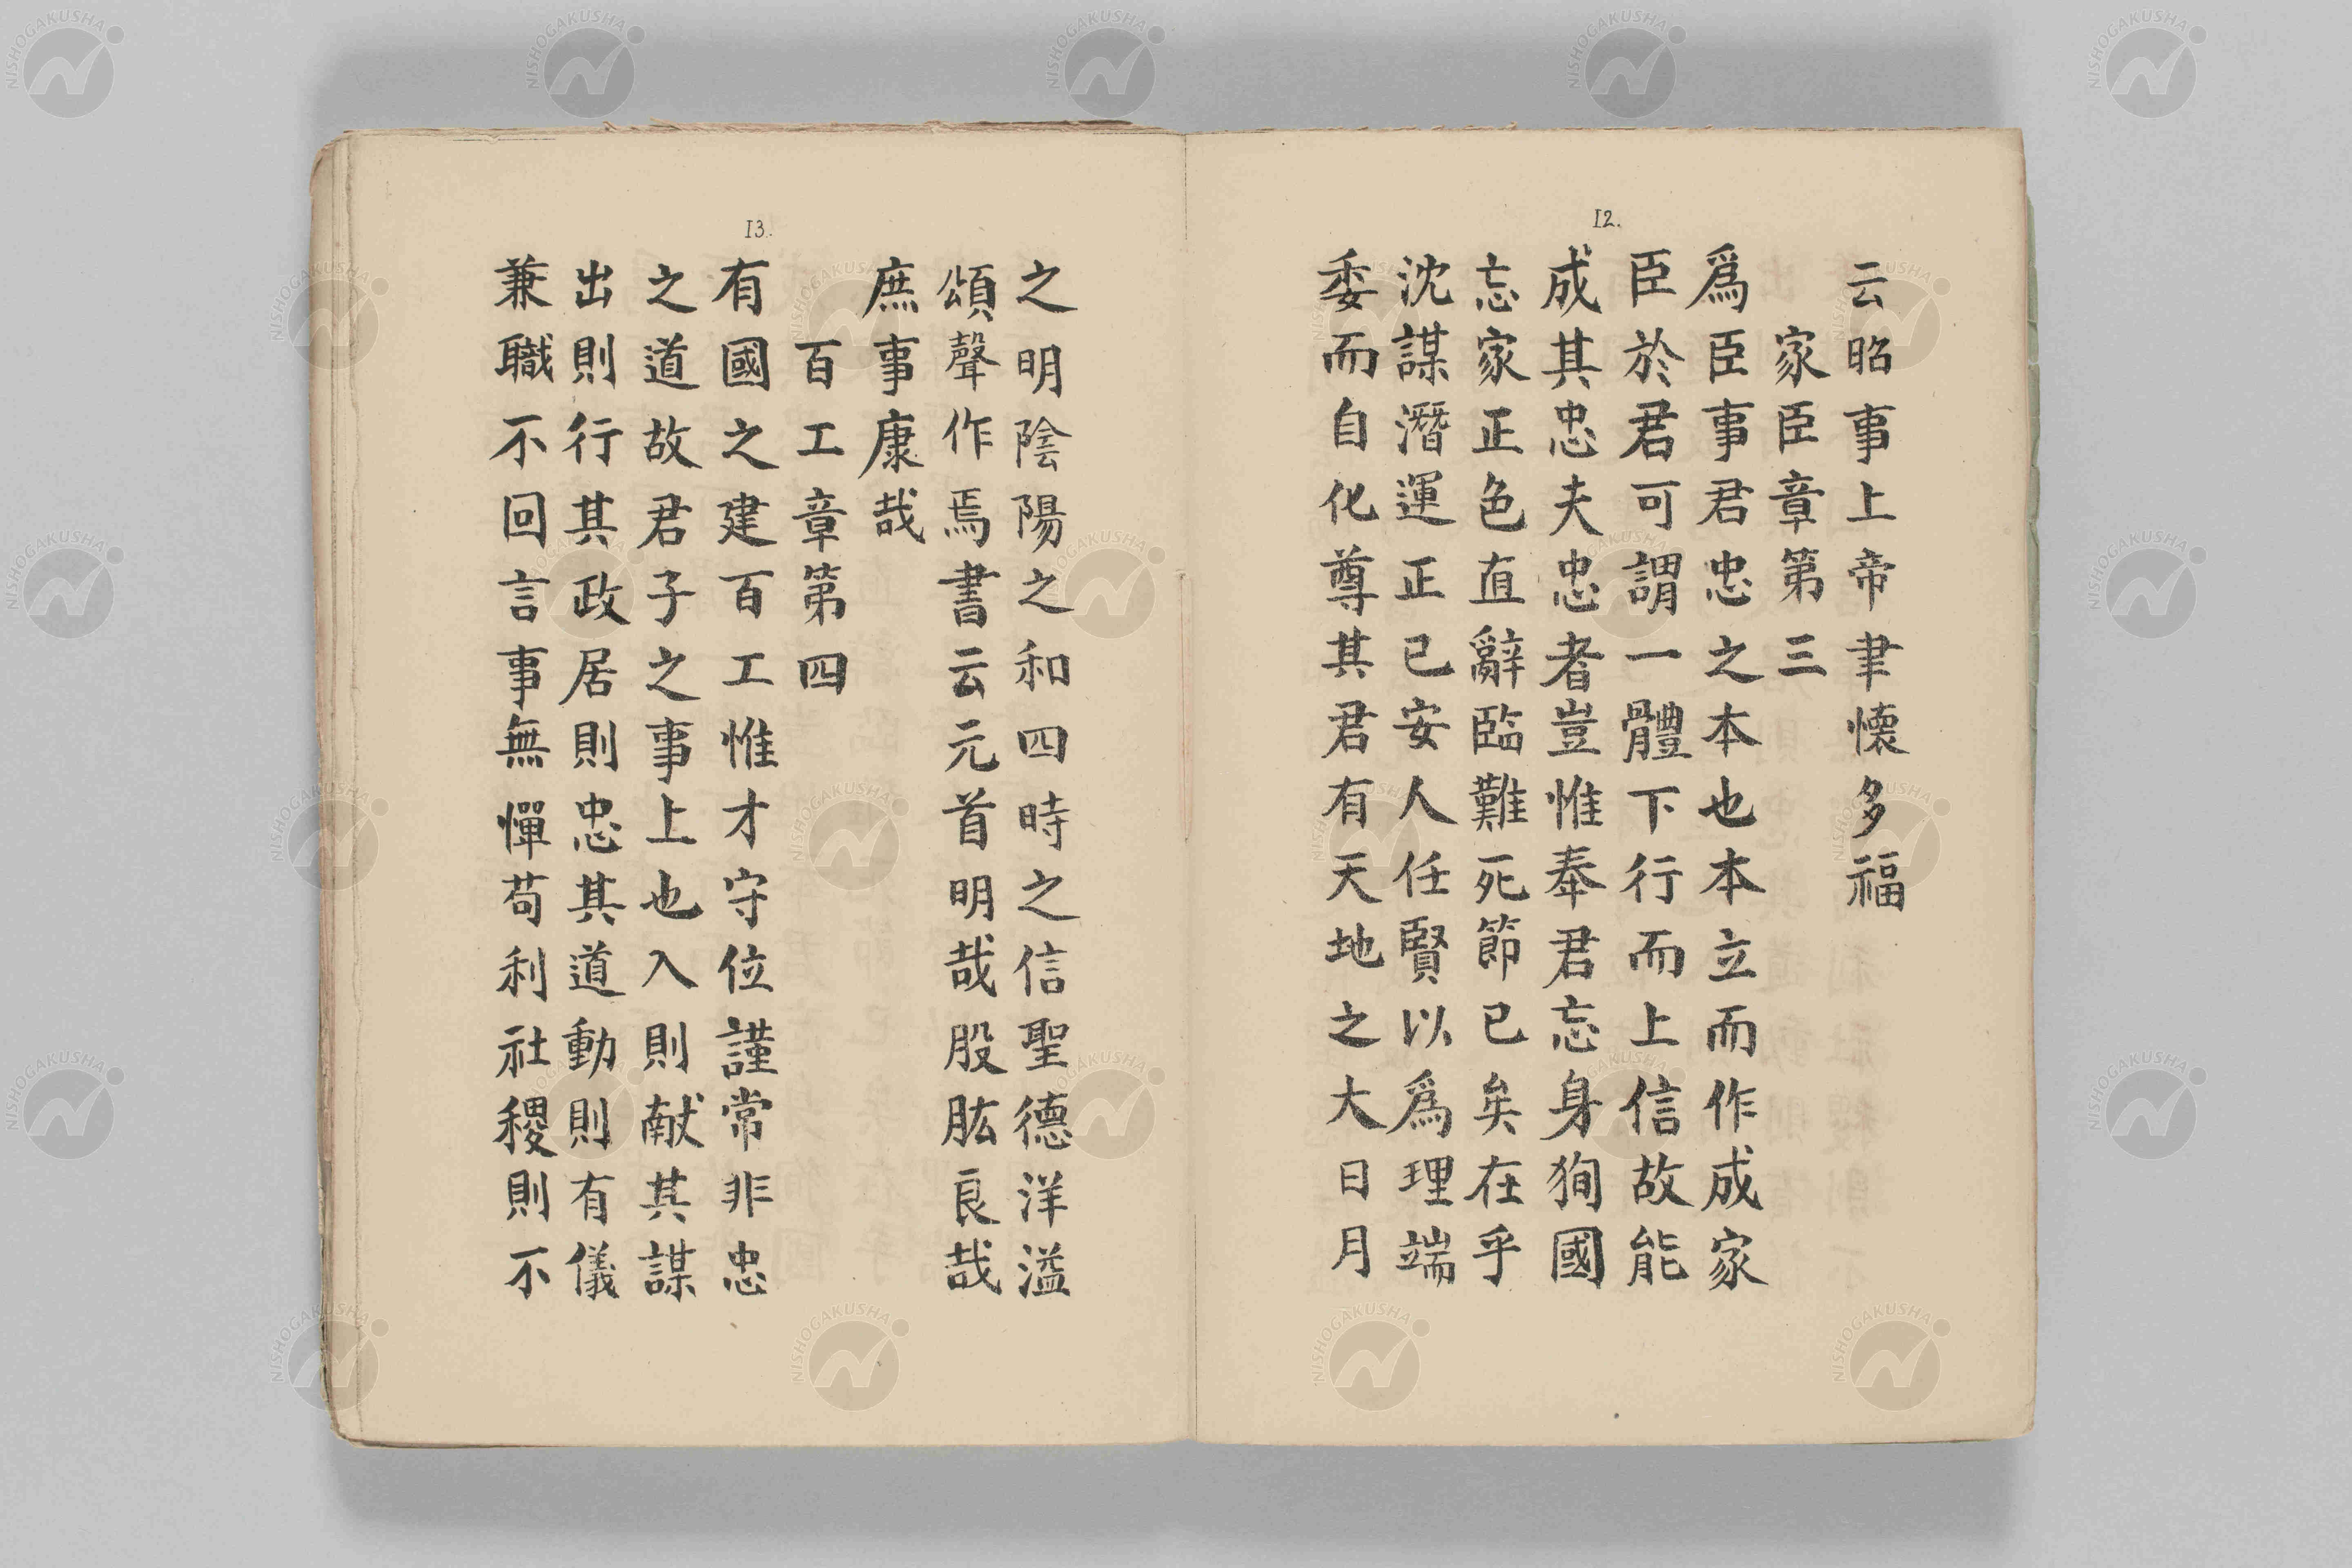 12.
云昭事上帝聿懷多福
家臣章第三
爲臣事君忠之本也本立而作成家
臣於君可謂一體下行而上信故能
成其忠夫忠者豈惟奉君忘身狥國
忘家正色直辭臨難死節已矣在乎
沈謀潛運正已安人任賢以爲理端
委而自化尊其君有天地之大日月
13.
之明陰陽之和四時之信聖德洋溢
頌聲作焉書云元首明哉股肱良哉
庶事康哉
百工章第四
有國之建百工惟才守位謹常非忠
之道故君子之事上也入則献其謀
出則行其政居則忠其道動則有儀
兼職不回言事無憚苟利社稷則不
NISHOGAKUSHA
NISHOGAKUSHA
NISHOGAKUSHA
NISHOGAKUSHA
NISHOGAKUSHA